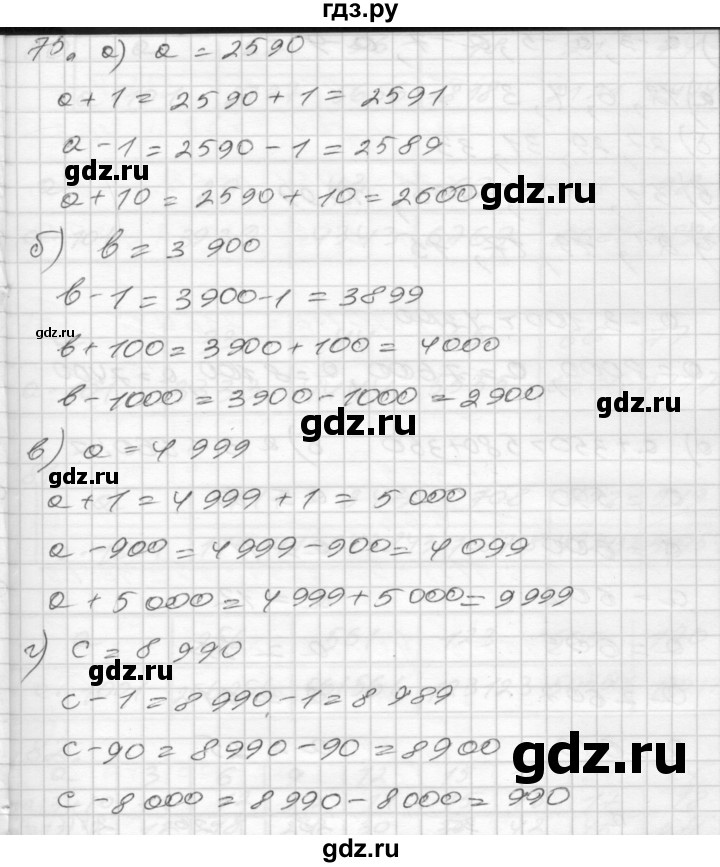 гдз.ру
75. а) a = 2590
a + 1 = 2590 + 1 = 2591
a - 1 = 2590 - 1 = 2589
gdz.ru
a + 10 = 2590 + 10 = 2600
gdz.ru
б) в = 3 900
в - 1 = 3900 - 1 = 3899
gdz.ru
в + 100 = 3900 + 100 = 4000
в - 1000 = 3900 - 1000 = 2900
gdz.ru
gdz.ru
в) a = 4 999
gdz.ru
a + 1 = 4 999 + 1 = 5 000
a - 900 = 4 999 - 900 = 4 099
a + 5 000 = 4 999 + 5 000 = 9 999
г) c = 8 990
gdz.ru
c - 1 = 8 990 - 1 = 8 989
c - 90 = 8 990 - 90 = 8900
gdz.ru
c - 8 000 = 8 990 - 8 000 = 990